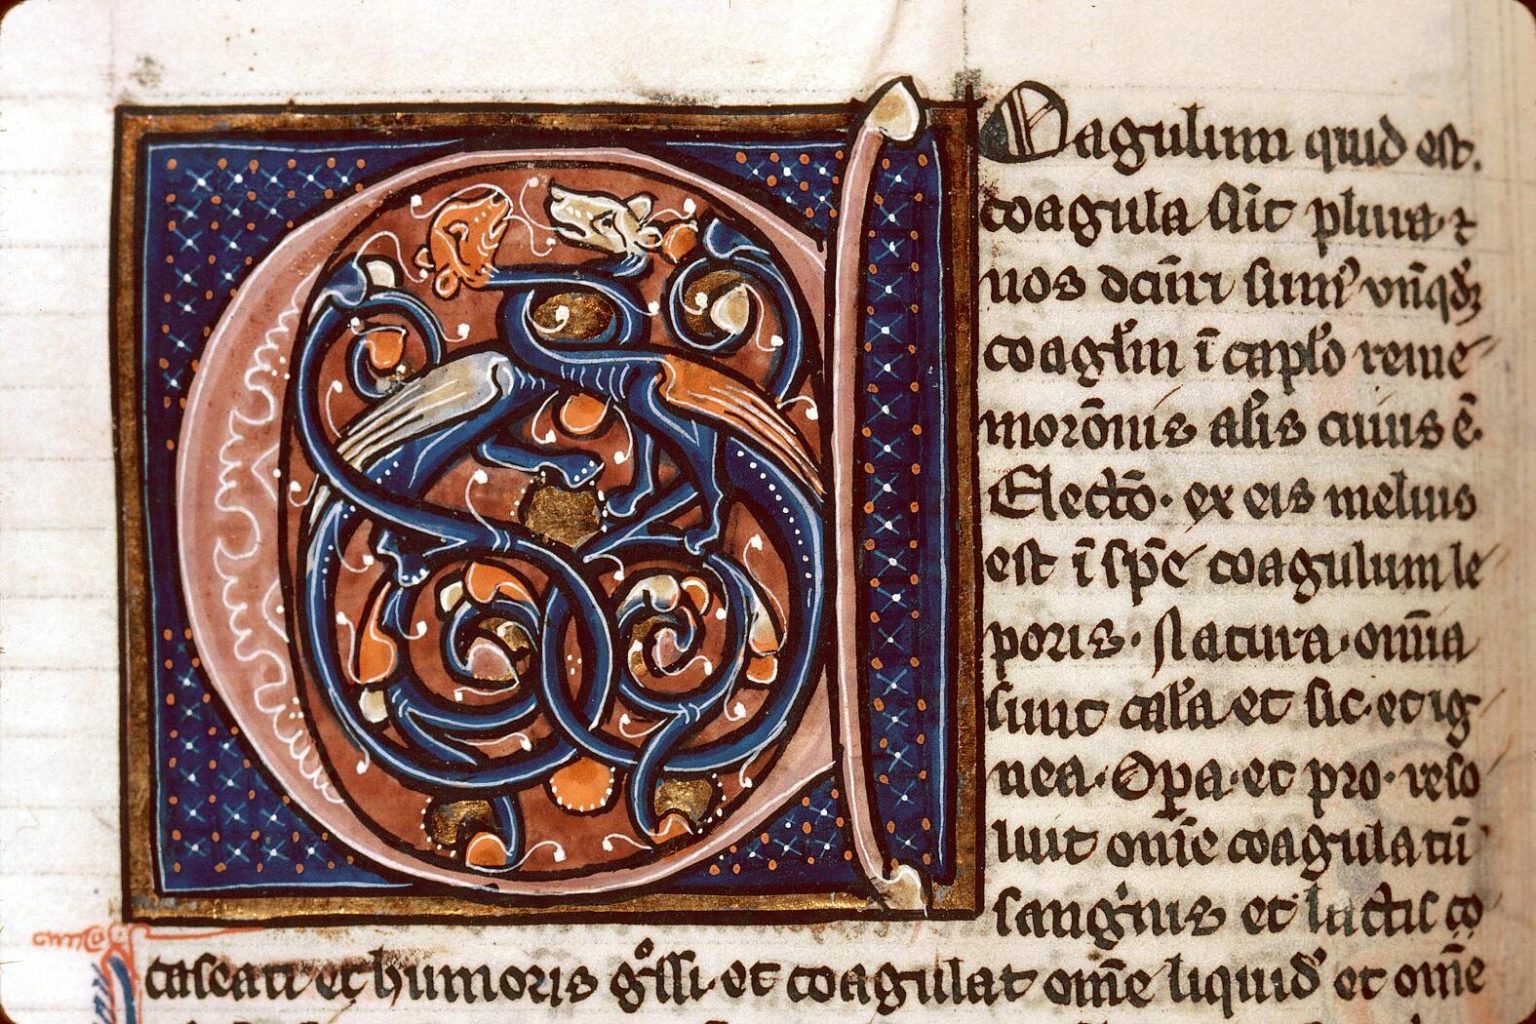 C Oagulum quid est.
coagula sūt plura. ⁊
nos dcūri sum᷒ vnū qd̓ꝫ
coagl̓m ī caplo̓ reme
morōnis al̓is cuius ē.
Electō. ex eis melius
est ī spē coagulum le
poris. Natura. om̄ia
sunt cal̓a et sic. et ig
nea. Opa. et pro. reso
luit om̄e coagulatū
sang̓nis et lactis co
caseati et humoris gͦssi. et coagulat om̄e liquid̓ et om̄e